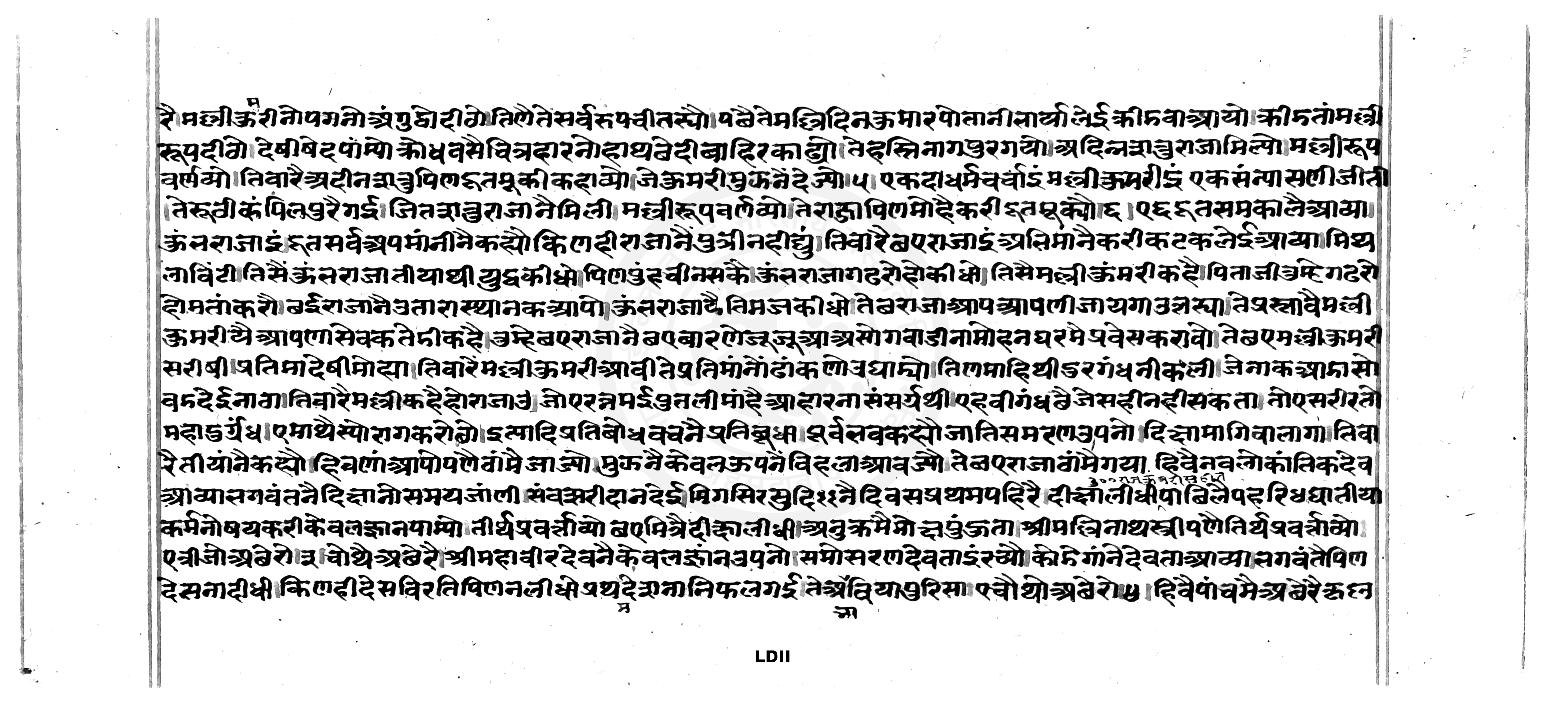 रै मल्लीकुमरीनो पगनो अंगुठो दीठो तिणैते सर्वरूप चीतस्यौ पछैते मल्लिदिन्नकुमार पोतानी भार्या लेई क्रीडवा आयो क्रीडतां मल्ली
रूप दीठो देषी षेद पांम्यो क्रोधवसै चित्रहारनो हाथ छेदी बाहिर काढ्यो ते हस्तिनागपुर गयो अदिनशत्रु राजा मिल्यो मल्लीरूप
वर्णव्यो तिवारै अदीनशत्रु पिण दूत मूकी कहाव्यो जे कुमरी मुझनै देज्यो ५ एकदा धर्मचर्चाइं मल्लीकुमरीइं एक संन्यासणी जीती
ते रूठी कंपिलपुरै गई जितशत्रु राजानै मिली मल्लीरूप वर्णव्यो ते राजा पिण मोहै करी दूत मूक्यौ ६ ए ६ दूत समकालै आव्या
कुंभराजाइं दूत सर्व अपमांनीनै कह्यौ किणही राजानै पुत्री नही द्युं तिवारै छए राजाइं अभिमानै करी कटक लेई आव्या मिथ
लां विंटी तिसैं कुंभराजा तीयाथी युद्ध कीधो पिण पुंहची न सकै कुंभराजा गढरोहो कीधो तिसै मल्लीकुंमरी कहै पिताजी तुम्हे गढरो
हो मतां करौ छई राजानै उतारा स्थानक आपो कुंभराजायै तिमज कीधो ते छ राजा आप आपणी जायगा उतस्या ते प्रस्तावै मल्ली
कुमरीयै आपणा सेवक तेडी कहै तुम्हे छए राजानै छए बारणे जूजूआ असोगवाडीना मोहनघरमे प्रवेस करावो ते छए मल्लीकुमरी
सरीषी प्रतिमा देषी मोह्या तिवारै मल्लीकुमरी आवी ते प्रतिमांनों ढांकणो उघाड्यो तिणमाहिथी दुरगंध नीकली जे नाक आडा सो
वड देई नाठा तिवारै मल्ली कहै हो राजाउ जो ए रत्नमई पुतली मांहै आहारनां संसर्गथी एहवी गंध छै जे सही नही सकता तो ए सरीरतो
महादुर्गंध ए माथै स्यो राग करो छो इत्यादि प्रतिबोध वचनै प्रतिबूधा पूर्वभव कह्यौ जातिसमरण उपनो दिक्षा मागिवा लागा तिवा
रै तीयांनै कह्यौ हिवणां आपोपणै ठांमै जाज्यो मुझनै केवल ऊपनै विहला आवज्यो ते छए राजा ठांमै गया हिवै नव लोकांतिक देव
आव्या भगवंतनै दिक्षानो समय जांणी संवछरीदान देई मिगसिर सुदि ११ नै दिवस प्रथम पहिरै दीक्षा लीधी पाछिलै पहरि घघातीया
कर्मनो षय करी केवलज्ञान पाम्यो तीर्थ प्रवर्त्ताव्यो छए मित्रै दीक्षा लीधी अनुक्रमै मोक्ष पुंहता श्रीमल्लिनाथ स्त्रीपणै तिर्थ प्रवर्त्ताव्यो
ए त्रीजो अछेरो ३ चोथै अछेरै श्रीमहावीरदेवनै केवलज्ञांन उपनो समोसरण देवताइं रच्यौ कोडिगांने देवता आव्या भगवंतै पिण
देसना दीधी किणही देसविरति पिण न लीधो प्रथम देशना निफल गई ते अभाविया पुरिसा ए चौथो अछेरो ४ हिवै पांचमै अछेरै कृष्ण
LDII